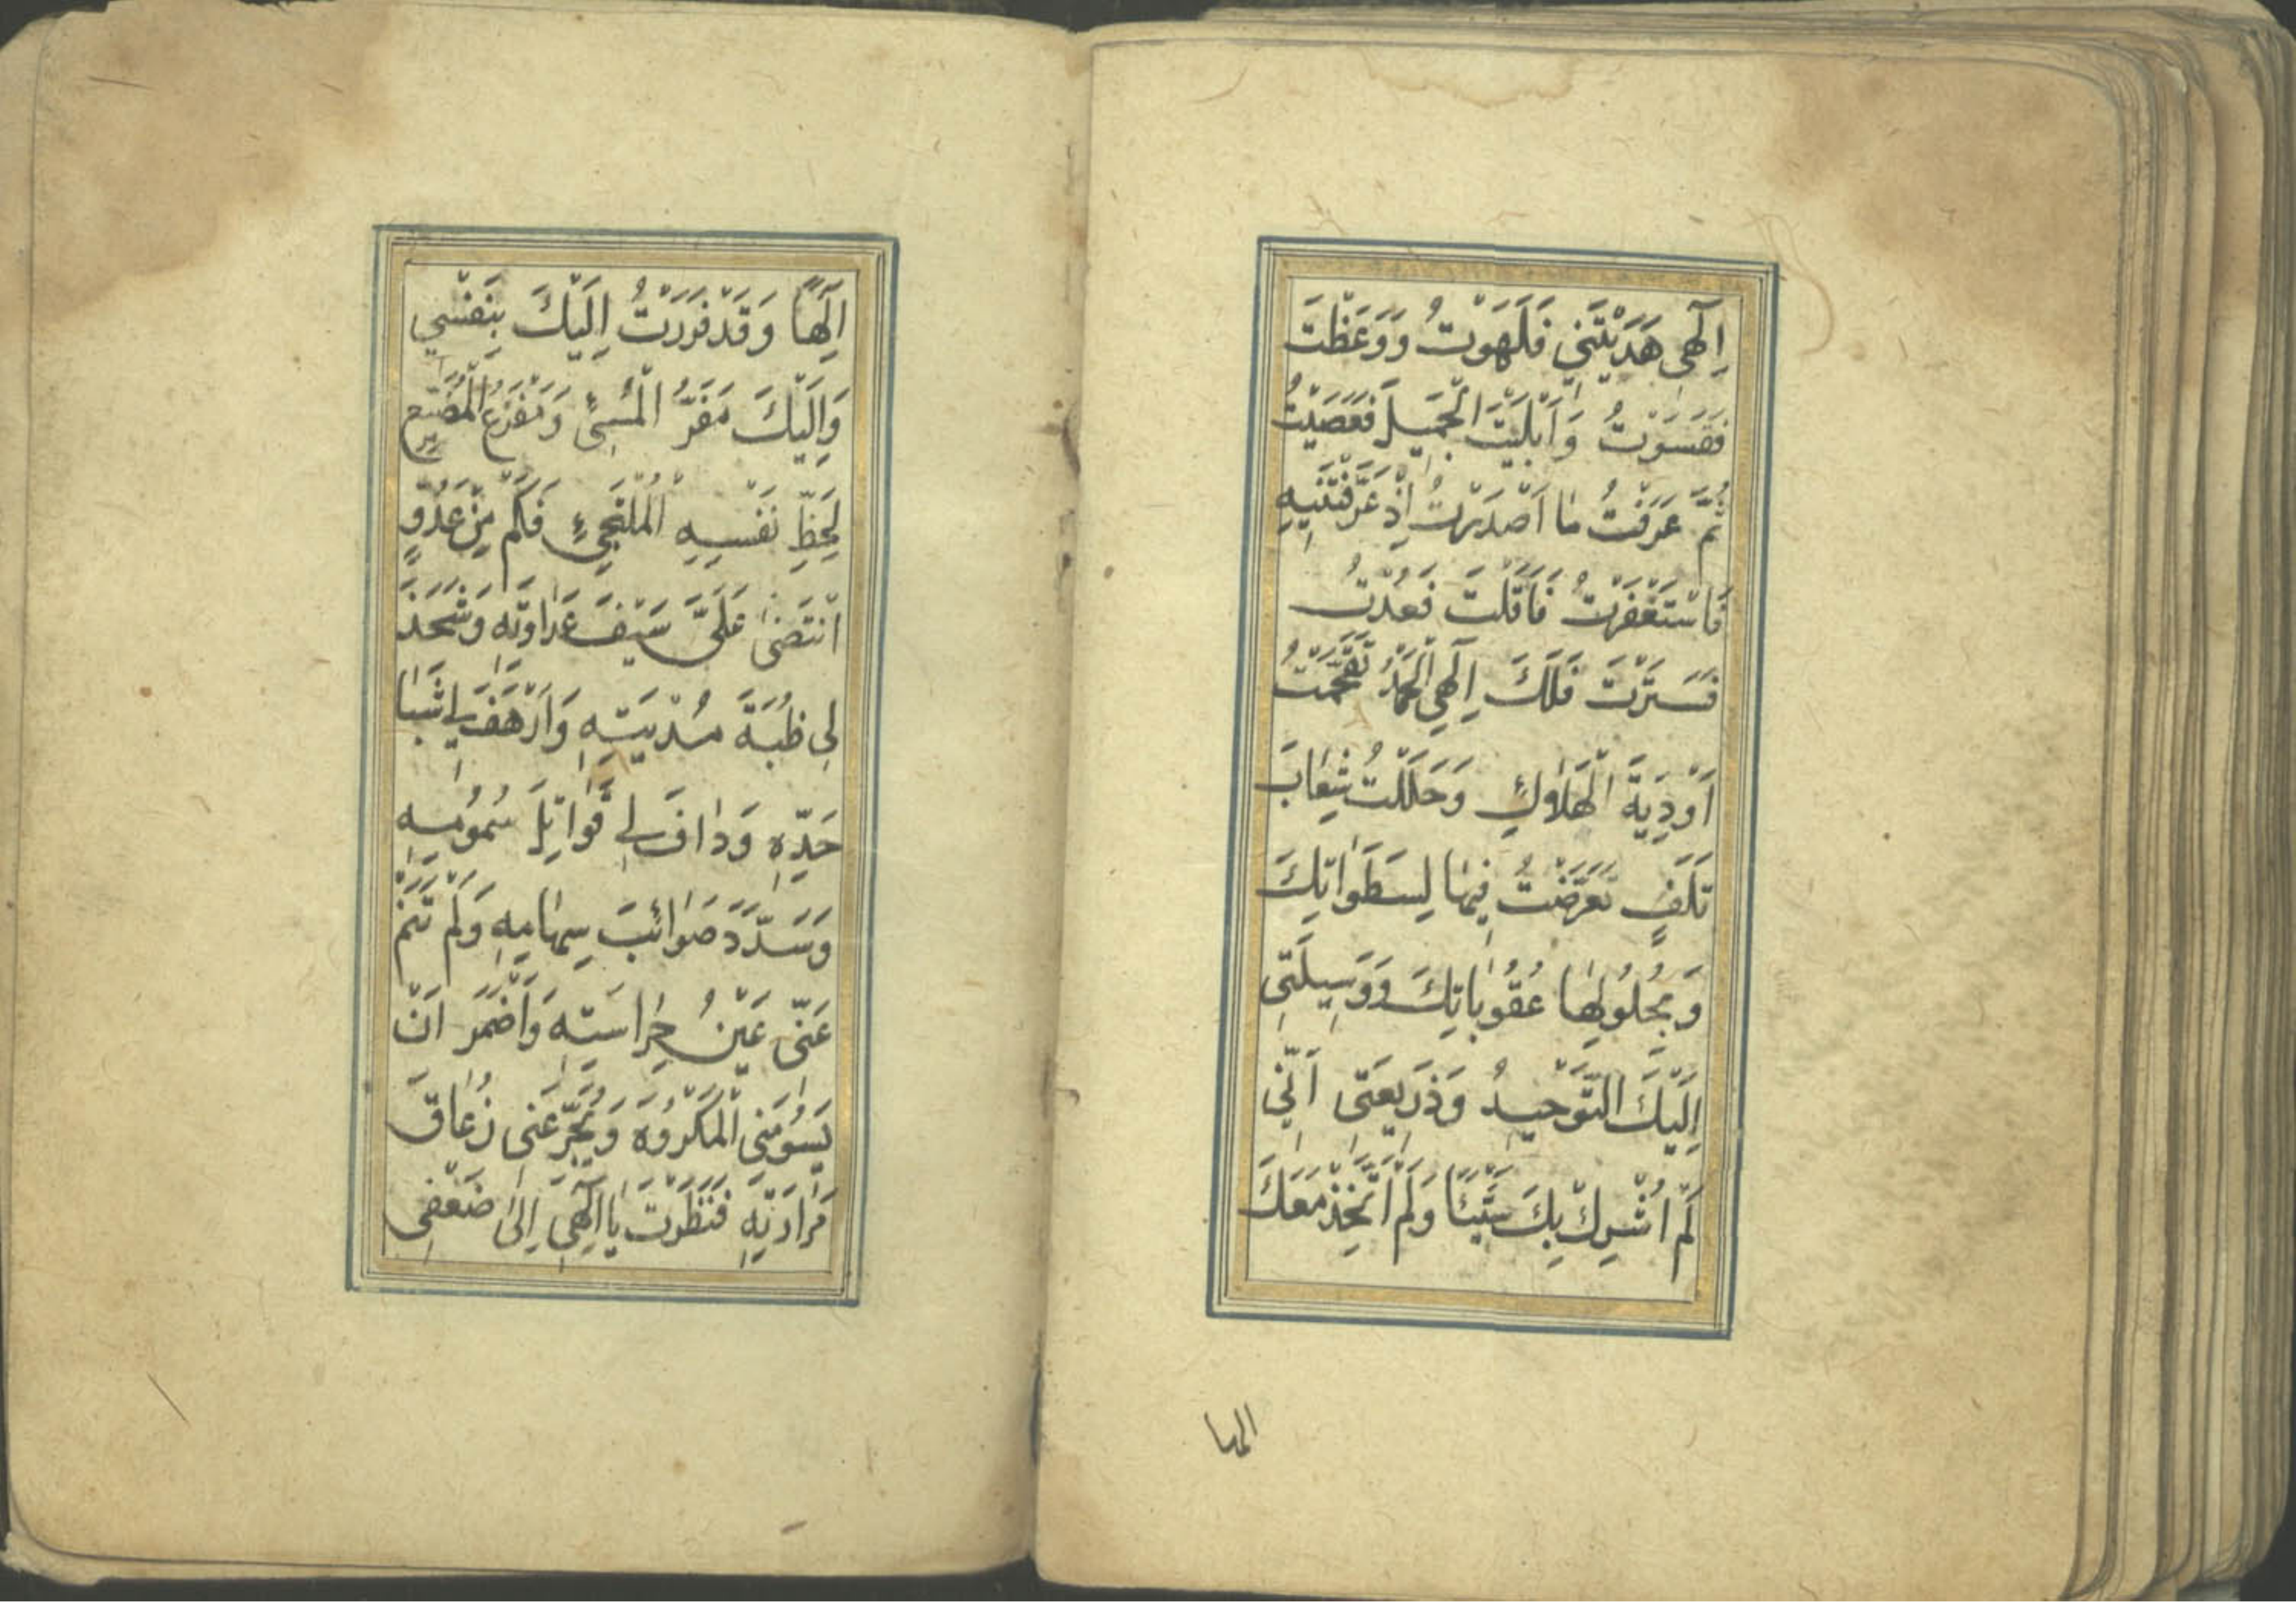 اِلٰهِي هَدَيْتَنِي فَلَهَوْتُ وَوَعَظْتَ
فَقَسَوْتُ وَاَبْلَيْتَ الْجَمِيلَ فَعَصَيْتُ
ثُمَّ عَرَفْتُ مَا اَصْدَرْتُ اِذْ عَرَّفْتَنِيهِ
فَاسْتَغْفَرْتُ فَاَقَلْتَ فَعُدْتُ
فَسَتَرْتَ فَلَكَ اِلٰهِي الْحَمْدُ تَقَحَّمْتُ
اَوْدِيَةَ الْهَلَاكِ وَحَلَلْتُ شِعَابَ
تَلَفٍ تَعَرَّضْتُ فِيهَا لِسَطَوَاتِكَ
وَبِحُلُولِهَا عُقُوبَاتِكَ وَوَسِيلَتِي
اِلَيْكَ التَّوْحِيدُ وَذَرِيعَتِي اَنِّي
لَمْ اُشْرِكْ بِكَ شَيْئًا وَلَمْ اَتَّخِذْ مَعَكَ
الها
اِلٰهًا وَقَدْ فَرَرْتُ اِلَيْكَ بِنَفْسِي
وَاِلَيْكَ مَفَرُّ الْمُسِيْئِ وَمَفْزَعُ الْمُضَيِّعِ
لِحَظِّ نَفْسِهِ الْمُلْتَجِئِ فَكَمْ مِنْ عَدُوٍّ
انْتَضَى عَلَيَّ سَيْفَ عَدَاوَتِهِ وَشَحَذَ
لِي ظُبَةَ مُدْيَتِهِ وَاَرْهَفَ لِي شَبَا
حَدِّهِ وَدَافَ لِي قَوَاتِلَ سُمُومِهِ
وَسَدَّدَ صَوَائِبَ سِهَامِهِ وَلَمْ تَنَمْ
عَنِّي عَيْنُ حِرَاسَتِهِ وَاَضْمَرَ اَنْ
يَسُومَنِي الْمَكْرُوهَ وَيُجَرِّعَنِي زُعَاقَ
مَرَارَتِهِ فَنَظَرْتَ يَا اِلٰهِي اِلَى ضَعْفِي